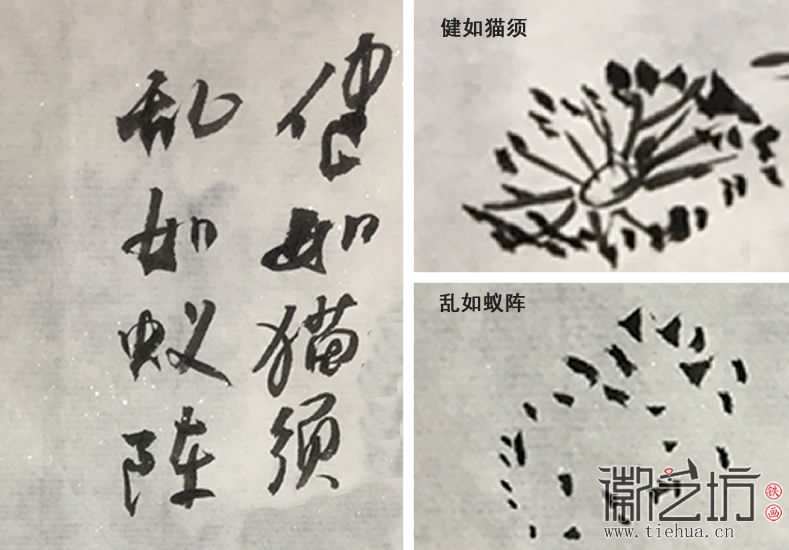 健如猫须
乱如蚁阵
健如猫须
乱如蚁阵
徽艺坊
铁画
www.tiehua.cn